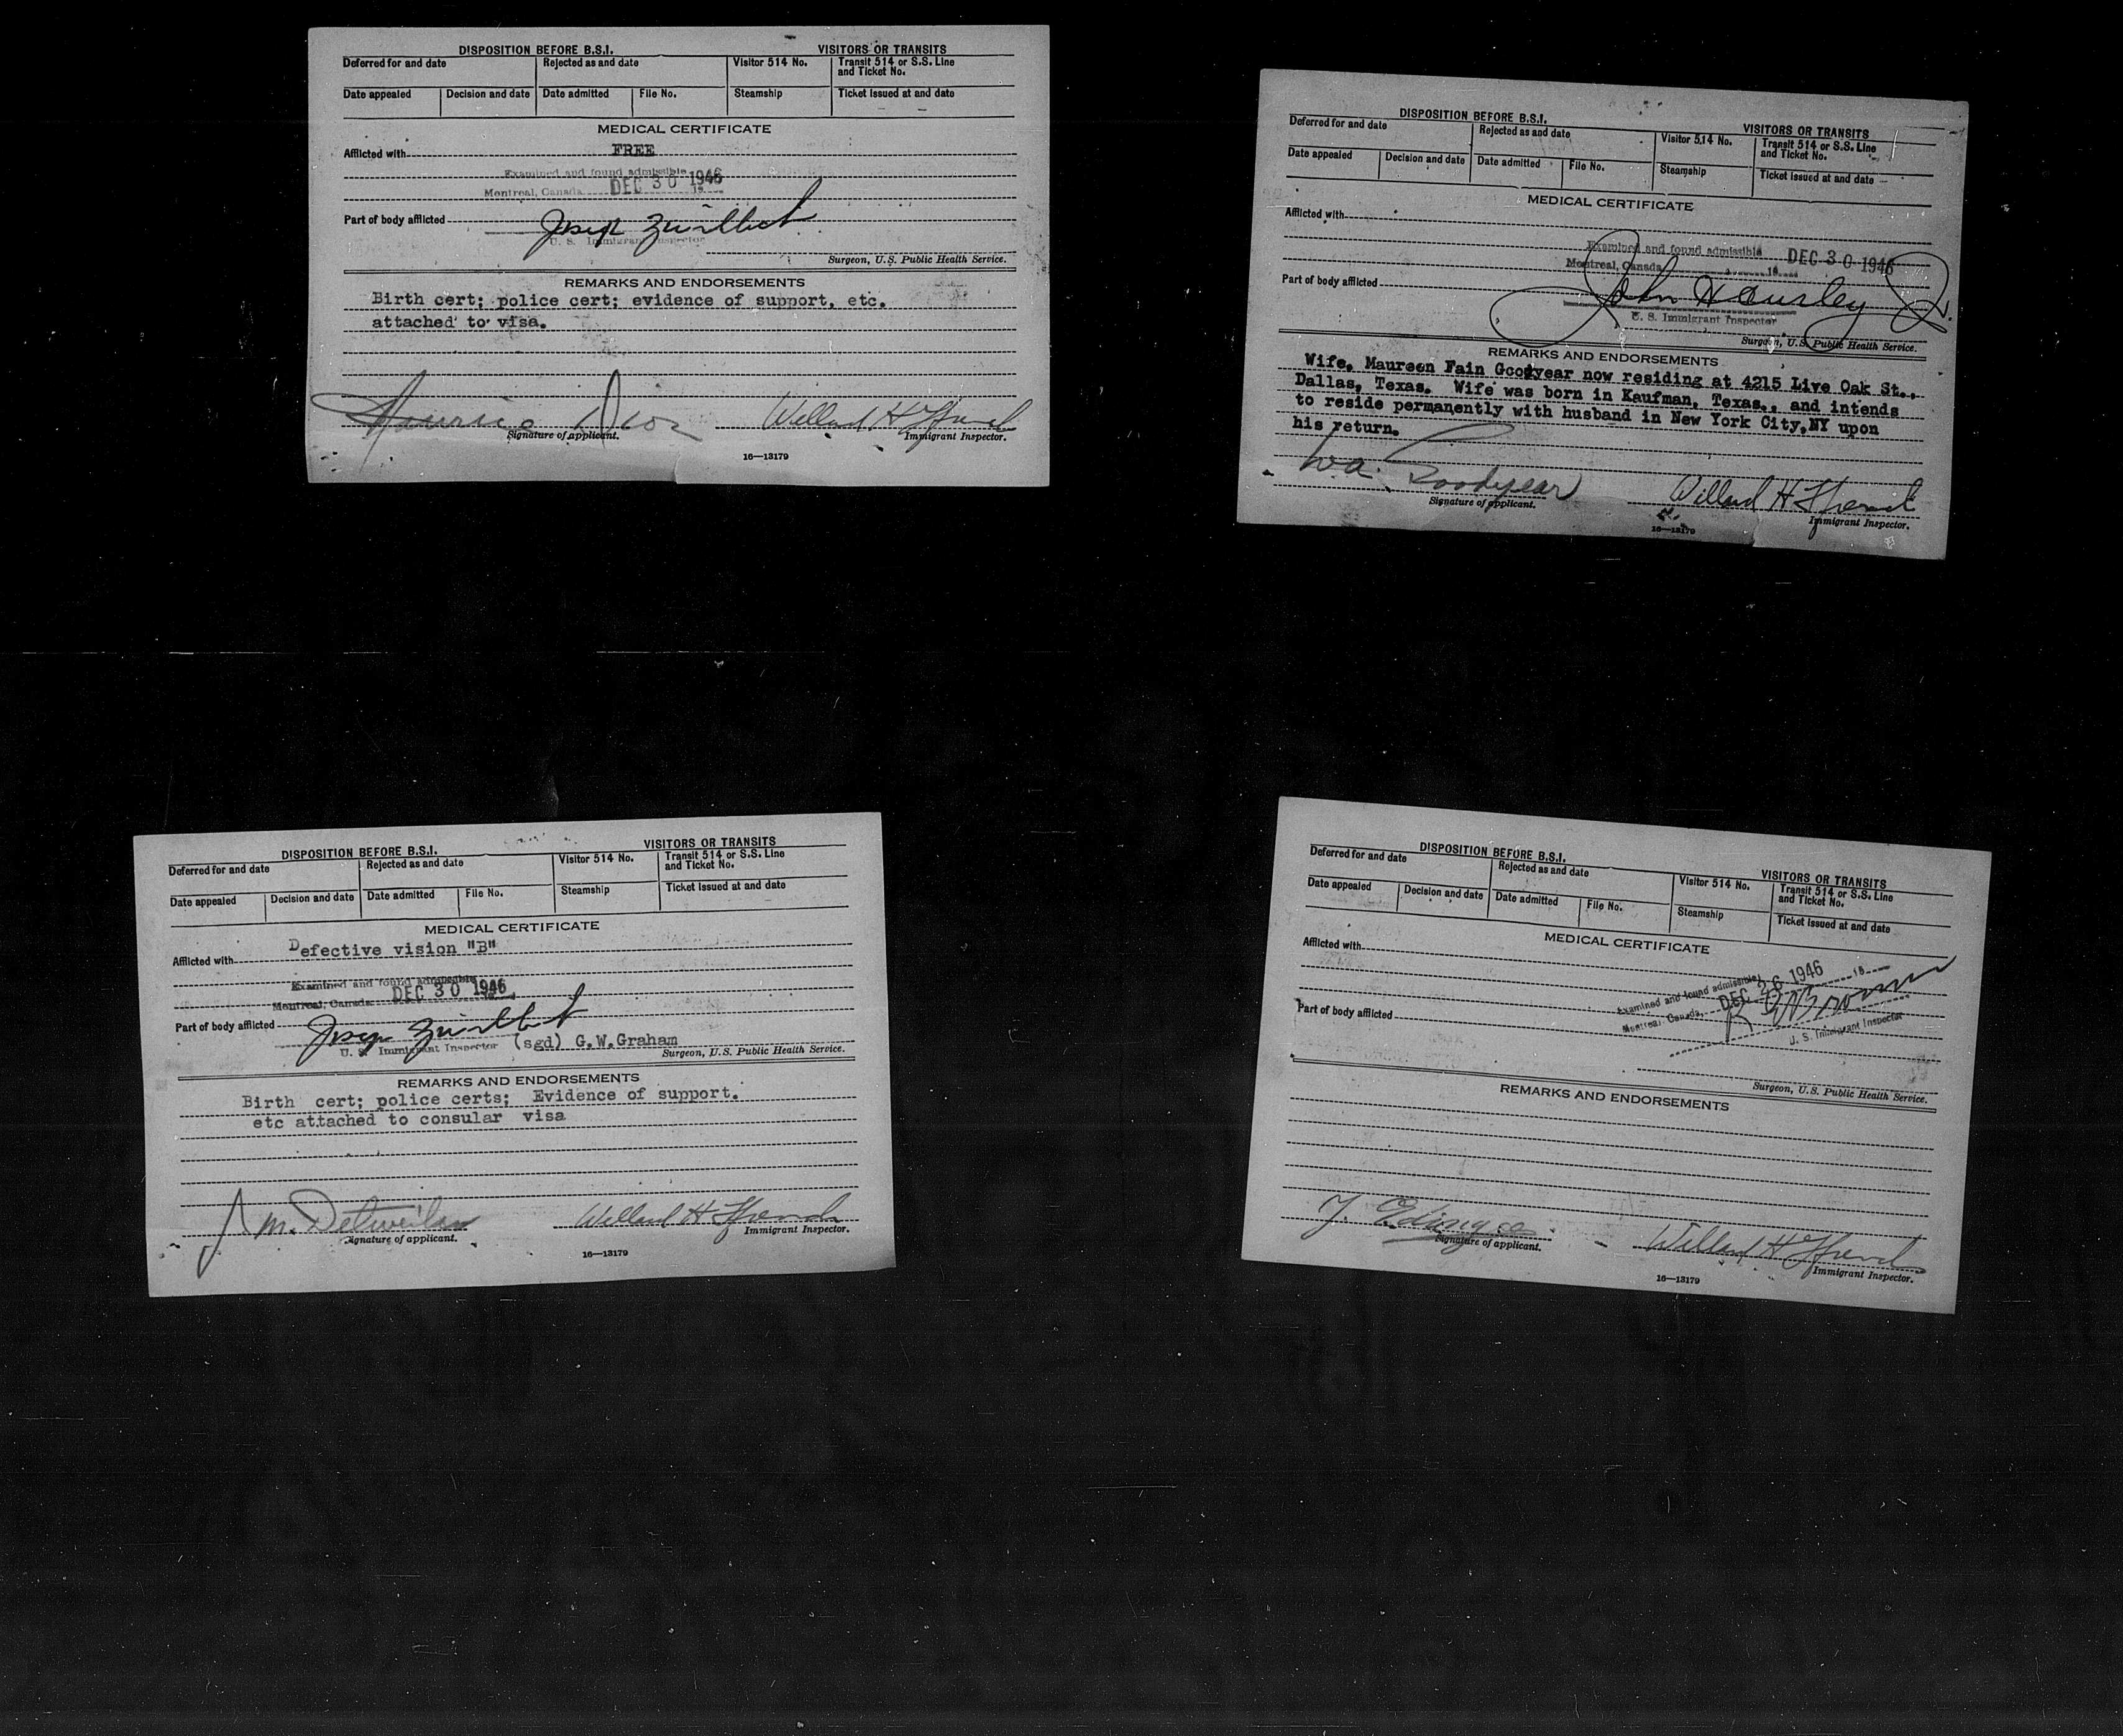 DISPOSITION BEFORE B.S.I. VISITORS OR TRANSITS
Deferred for and date Rejected as and date Visitor 514 No. Transit 514 or S.S. Line and Ticket No.
Date appealed Decision and date Date admitted File No. Steamship Ticket issued at and date
MEDICAL CERTIFICATE
Afflicted with FREE
Examined and found admissible
Montreal, Canada DEC 30 1946
Part of body afflicted
U. S. Immigrant Inspector
Surgeon, U.S. Public Health Service.
REMARKS AND ENDORSEMENTS
Birth cert; police cert; evidence of support, etc.
attached to visa.
Willard H
Signature of applicant. Immigrant Inspector.
16—13179
DISPOSITION BEFORE B.S.I. VISITORS OR TRANSITS
Deferred for and date Rejected as and date Visitor 514 No. Transit 514 or S.S. Line and Ticket No.
Date appealed Decision and date Date admitted File No. Steamship Ticket issued at and date
MEDICAL CERTIFICATE
Afflicted with
Examined and found admissible
Montreal, Canada 19 DEC 30 1946
Part of body afflicted
John H Curley Jr.
U. S. Immigrant Inspector
Surgeon, U.S. Public Health Service.
REMARKS AND ENDORSEMENTS
Wife, Maureen Fain Goodyear now residing at 4215 Live Oak St.,
Dallas, Texas. Wife was born in Kaufman, Texas., and intends
to reside permanently with husband in New York City,NY upon
his return.
W.A. Goodyear Willard H
Signature of applicant. Immigrant Inspector.
16—13179
DISPOSITION BEFORE B.S.I. VISITORS OR TRANSITS
Deferred for and date Rejected as and date Visitor 514 No. Transit 514 or S.S. Line and Ticket No.
Date appealed Decision and date Date admitted File No. Steamship Ticket issued at and date
MEDICAL CERTIFICATE
Afflicted with Defective vision "B"
Examined and found admissible
Montreal, Canada DEC 30 1946
Part of body afflicted
U. S. Immigrant Inspector (sgd) G.W.Graham
Surgeon, U.S. Public Health Service.
REMARKS AND ENDORSEMENTS
Birth cert; police certs; Evidence of support.
etc attached to consular visa
J M. Detweiler Willard H
Signature of applicant. Immigrant Inspector.
16—13179
DISPOSITION BEFORE B.S.I. VISITORS OR TRANSITS
Deferred for and date Rejected as and date Visitor 514 No. Transit 514 or S.S. Line and Ticket No.
Date appealed Decision and date Date admitted File No. Steamship Ticket issued at and date
MEDICAL CERTIFICATE
Afflicted with
Examined and found admissible
Montreal, Canada, DEC 26 1946 19
Part of body afflicted
U. S. Immigrant Inspector
Surgeon, U.S. Public Health Service.
REMARKS AND ENDORSEMENTS
Willard H
Signature of applicant. Immigrant Inspector.
16—13179